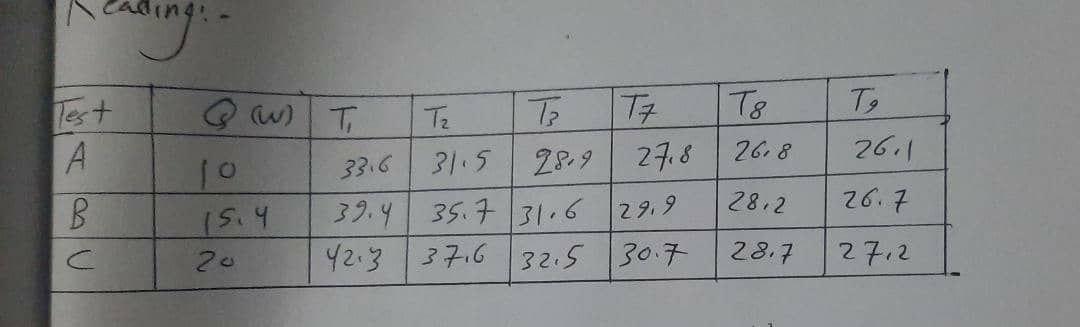 Reading:-
Test Q (W) T1 T2 T3 T7 T8 T9
A 10 33.6 31.5 28.9 27.8 26.8 26.1
B 15.4 39.4 35.7 31.6 29.9 28.2 26.7
C 20 42.3 37.6 32.5 30.7 28.7 27.2